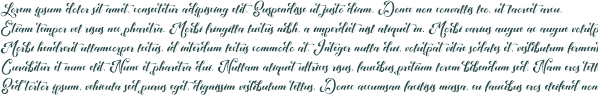 Lorem ipsum dolor sit amet, consectetur adipiscing elit. Suspendisse ut justo diam. Donec non convallis leo, ut laoreet arcu.
Etiam tempor est risus nec pharetra. Morbi fringilla luctus nibh, a imperdiet est aliquet in. Morbi varius augue ac augue volutp
Morbi hendrerit ullamcorper lectus, id interdum lectus commodo at. Integer nulla dui, volutpat vitae sodales et, vestibulum fermen
Curabitur et nunc elit. Nunc et pharetra dui. Nullam aliquet ultrices risus, faucibus pretium lorem bibendum sed. Nam eros tell
Sed tortor ipsum, vehicula sed purus eget, dignissim vestibulum tellus. Donec accumsan facilisis massa, eu faucibus eros eleifend non